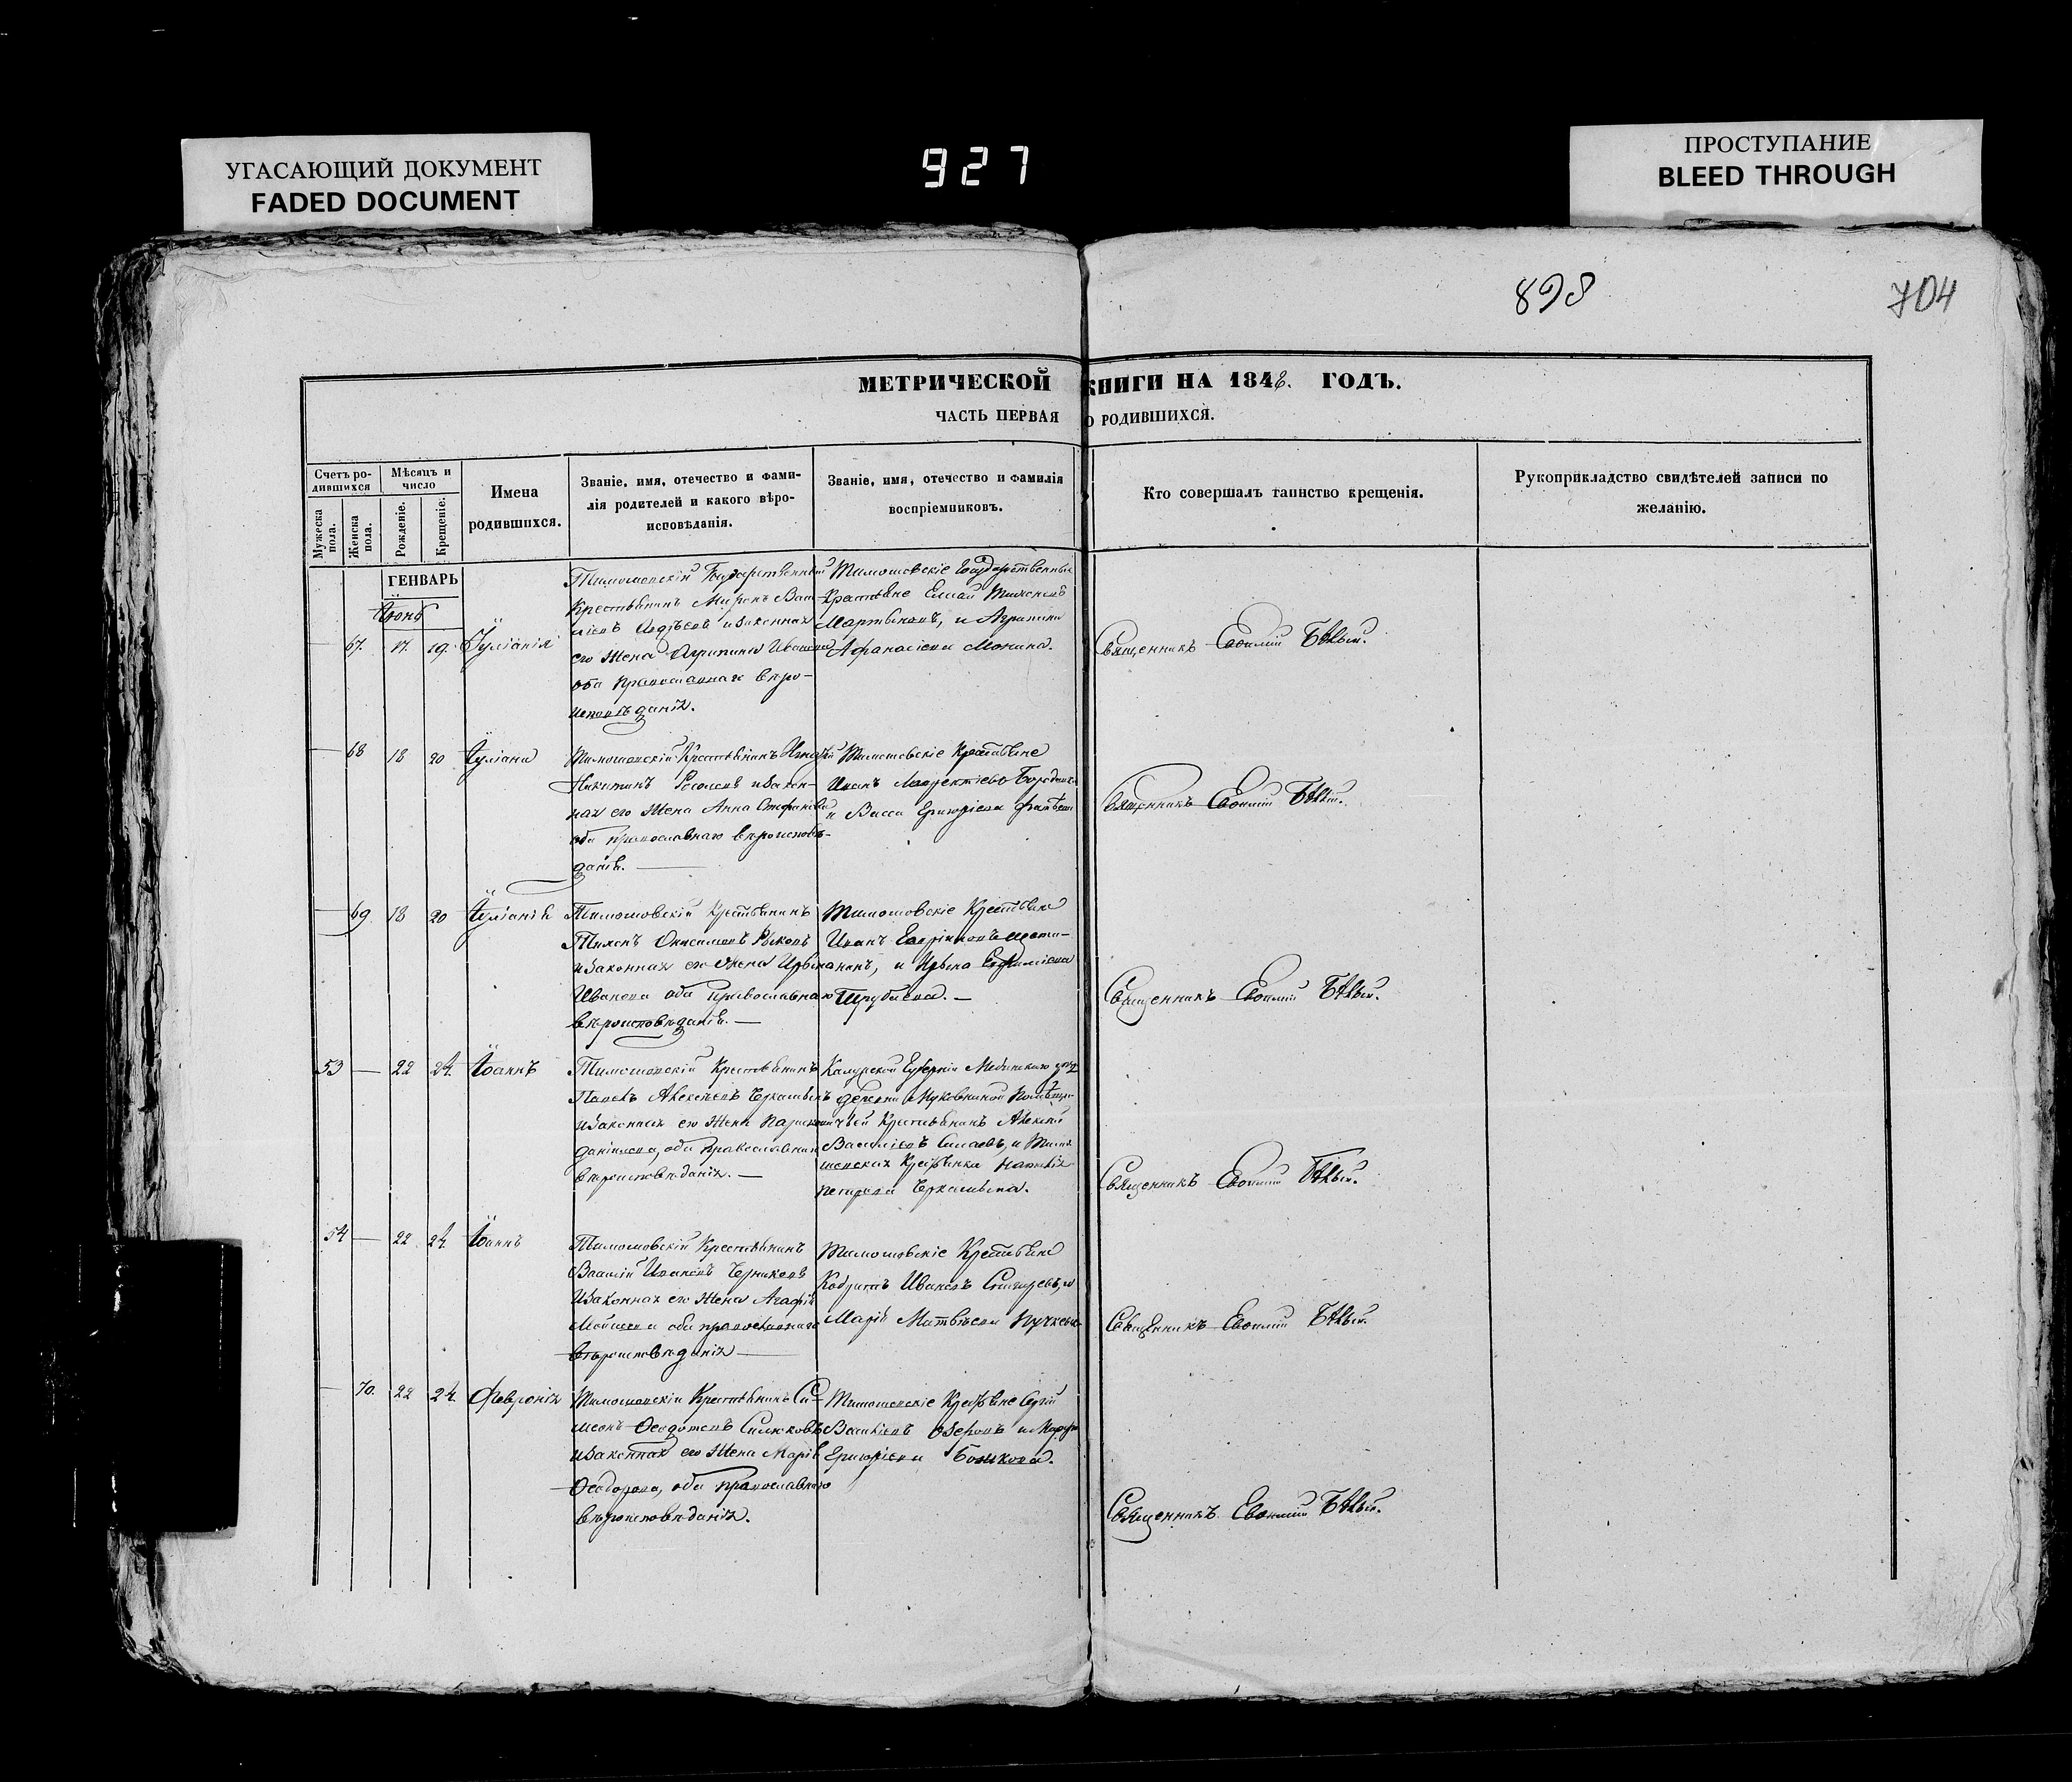 УГАСАЮЩИЙ ДОКУМЕНТ
FADED DOCUMENT
927
ПРОСТУПАНИЕ
BLEED THROUGH
898
704
МЕТРИЧЕСКОЙ КНИГИ НА 1848. ГОДЪ.
ЧАСТЬ ПЕРВАЯ О РОДИВШИХСЯ.
Счетъ ро-
дившихся
Мужеска пола.
Женска пола.
Мѣсяцъ и
число
Рожденіе.
Крещеніе.
Имена
родившихся.
Званіе, имя, отечество и фами-
лія родителей и какого вѣро-
исповѣданія.
Званіе, имя, отечество и фамилія
воспріемниковъ.
Кто совершалъ таинство крещенія.
Рукоприкладство свидѣтелей записи по
желанію.
ГЕНВАРЬ
Іюнь
67. 17. 19. Іуліанія
Тимошовскій Государственный
Крестьянинъ Миронъ Васи-
ліевъ и законная
его жена Агрипина Иванова
оба православнаго вѣро-
исповѣданія.
Тимошовскіе Государственные
Крестьяне Елисей
Мартыновъ, и Агрипина
Афанасіева Монина.
Священникъ Евфимій Бѣлый.
68 18 20 Іуліанія
Тимошовскій Крестьянинъ
Никитинъ и закон-
ная его жена Анна Стефанова
оба православнаго вѣроисповѣ-
данія.
Тимошовскіе Крестьяне
Иванъ
и Васса Григоріева
Священникъ Евфимій Бѣлый.
69 18 20 Іуліанія
Тимошовскій Крестьянинъ
Тихонъ Рыковъ
и законная его жена Ирина
Иванова оба православнаго
вѣроисповѣданія.
Тимошовскіе Крестьяне
Иванъ
и Ирина
Трубаева.
Священникъ Евфимій Бѣлый.
53 — 22 24. Іоаннъ
Тимошовскій Крестьянинъ
Павелъ Алексѣевъ
и законная его жена
Даніилова, оба православнаго
вѣроисповѣданія.
Калужской Губерніи
деревни
Крестьянинъ Алексѣй
Василіевъ и Тимо-
шовская Крестьянка Наталія
Петрова
Священникъ Евфимій Бѣлый.
54 — 22 24 Іоаннъ
Тимошовскій Крестьянинъ
Василій Ивановъ Черниковъ
и законная его жена Агафія
Моисеева оба православнаго
вѣроисповѣданія
Тимошовскіе Крестьяне
Ивановъ и
Марія Матвѣева Пучкова
Священникъ Евфимій Бѣлый.
70. 22 24. Февронія
Тимошовскій Крестьянинъ Си-
меонъ Ѳеодотовъ
и законная его жена Марія
Ѳеодорова, оба православнаго
вѣроисповѣданія.
Тимошовскіе Крестьяне Сергій
Василіевъ Озеровъ и
Григоріева
Священникъ Евфимій Бѣлый.